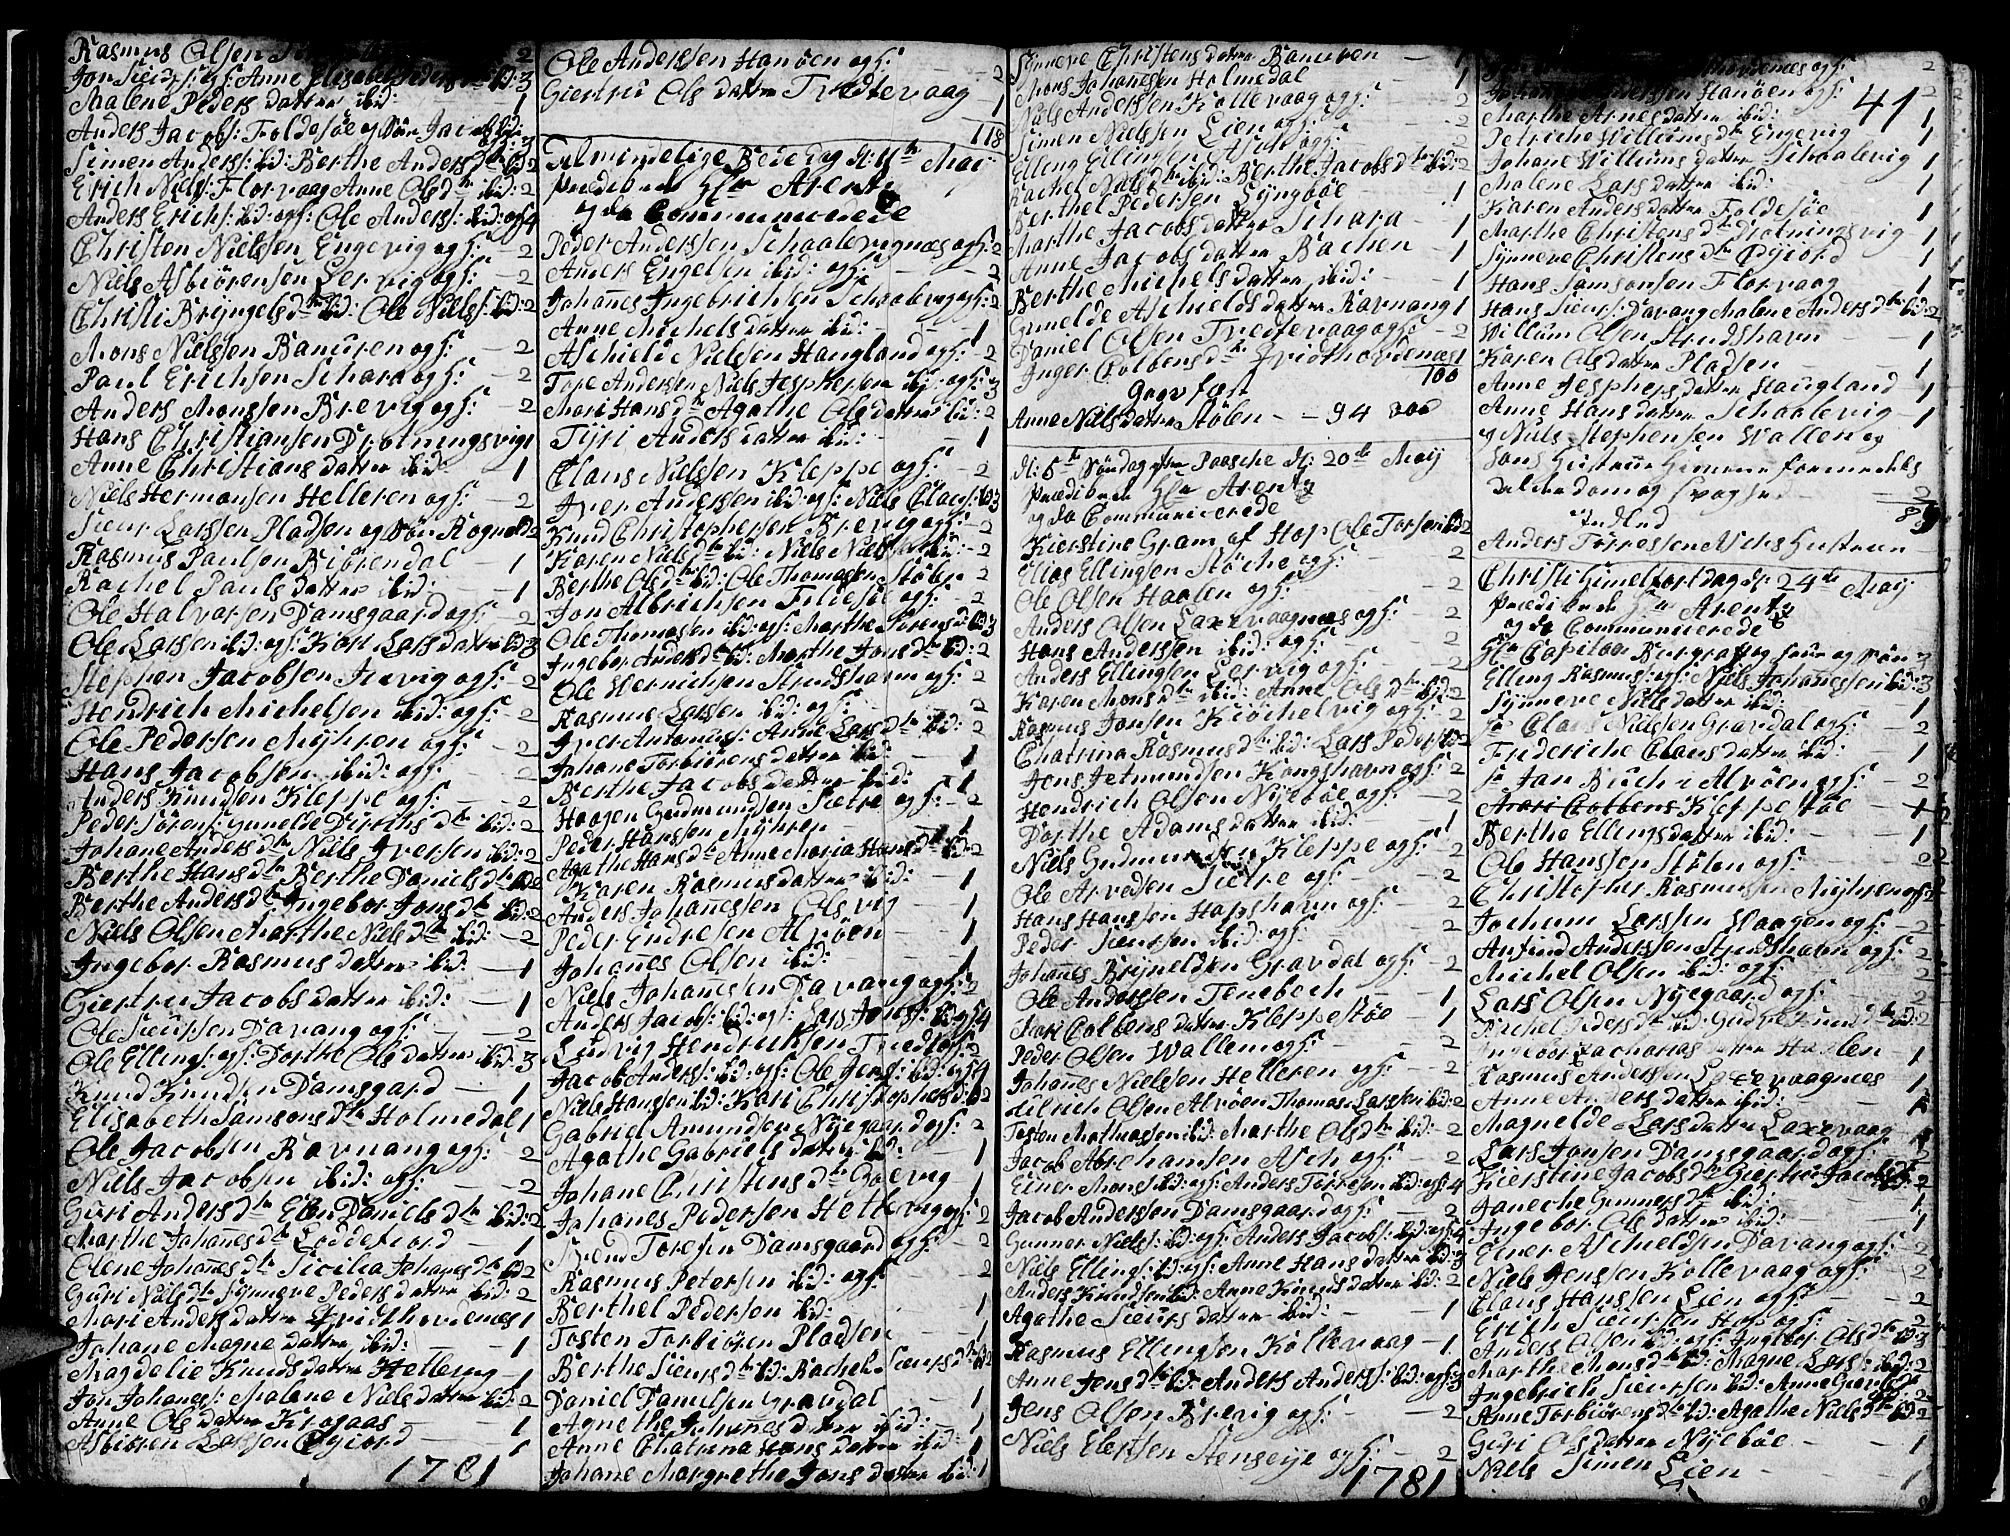 Rasmus Olsen 2
Jon Siurs: ogs: Anne Elisabet Peders ibid: 3
Malene Peders datter ibid: 1
Anders Jacobs: Foldesøe og Søn Jacob ibid: 3
Simen Anders: ibid: Berthe Anders dtr ibid 2
Erich Niels: Florvaag Anne Ols dtr ibid: 2
Anders Erichs: ibid: ogs: Ole Anders: ibid: ogs 4
Christen Nielsen Engevig ogs: 2
Niels Asbiørensen Lervig ogs: 2
Christi Bryngels dtr ibid: Ole Nielss: ibid: 2
Mons Nielssen Banuren ogs: 2
Paul Erichsen Schara ogs: 2
Anders Monssen Brevig ogs: 2
Hans Christiansen Drotningsvig 1
Anne Christians datter ibid: 1
Niels Hermansen Helleren ogs: 2
Siur Larssen Pladsen og Søn Rognald 2
Rasmus Paulsen Biørendal 1
Rachel Pauls datter ibid: 1
Ole Halvorsen Damsgaard ogs: 2
Ole Larssen ibid: ogs: Kari Lars datter ibid 3
Stephen Jacobsen Ievig ogs: 2
Hendrich Michelsen ibid: ogs: 2
Ole Pedersen Myhren ogs: 2
Hans Jacobsen ibid: ogs: 2
Anders Knudsen Kleppe ogs: 2
Peder Sørens: Gunelde Dirichs dtr ibid: 2
Johane Anders dtr Niels Iversen ibid: 2
Berthe Hans dtr Berthe Daniels dtr ibid 2
Berthe Anders dtr Ingebor Jons dtr ibid: 2
Niels Olsen Marthe Niels dtr ibid: 2
Ingebor Rasmus datter ibid: 1
Giertru Jacobs datter ibid: 1
Ole Siurssen Davang ogs: 2
Ole Ellings: ogs: Dorthe Ols datter ibid: 3
Knud Knudsen Damsgaard 1
Elisabeth Samsons dtr Holmedal 1
Ole Jacobsen Ravnang ogs: 2
Niels Jacobsen ibid: ogs: 2
Guri Anders dtr Elen Daniels dtr ibid: 2
Marthe Johanes dtr Loddefiord 1
Olene Johanes dtr Sicilia Johanes dtr ibid 2
Guri Niels dtr Synneve Peders datter ibid: 2
Mari Anders datter Qvidthovednæs 1
Johane Magne datter ibid: 1
Magdelie Knuds datter Hetlevig 1
Jon Johanes: Malene Niels datter ibid: 2
Anne Ols datter Krogaas 1
Asbiøren Larssen Ogiord 1
1781
Ole Anderssen Hanøen ogs: 2
Giertru Ols datter Tredtevaag 1
118
Almindelige Bededag d: 11te Maij
prædikede Hr Arentz
og da Communicerede
Peder Anderssen Schaalevignæs ogs: 2
Anders Engelsen ibid: ogs: 2
Johanes Ingebrichsen Schaalevig ogs: 2
Anne Michels datter ibid: 1
Aschield Nielssen Haugland ogs: 2
Tore Anderssen Niels Jesphersen ibid: ogs: 3
Mari Hans dtr Agathe Ols datter ibid: 2
Tyri Anders datter ibid: 1
Claus Nielssen Kleppe ogs: 2
Iver Anderssen ibid: ogs: Niels Claus: ibid 3
Knud Christophersen Brevig ogs: 2
Karen Niels dtr ibid: Niels Nielsen ibid: 2
Berthe Ols dtr ibid: Ole Thomassen Stølen 2
Jon Albrichsen Tilesøe ogs: 2
Ole Thomassen ibid: ogs: Marthe Sørens d: ibid 3
Ingebor Anders dtr ibid: Marthe Jons dtr ibid: 2
Ole Wernichsen Strudshavn ogs: 2
Rasmus Larssen ibid: ogs: 2
Iver Antonius: Anne Lars dtr ibid: 2
Johane Torbiørens datter ibid: 1
Berthe Jacobs datter ibid: 1
Haagen Gudmundsen Sietre ogs: 2
Peder Hanssen Myhren 1
Agathe Hans dtr Anne Maria Hans dtr ibid: 2
Karen Rasmus datter ibid: 1
Anders Johanessen Olsvig 1
Peder Endresen Alvøen 1
Johanes Olsen ibid: 1
Niels Johanessen Davang ogs: 2
Anders Jacobs: ibid: ogs: Lars Jons: ibid ogs 4
Ludvig Hendrichsen Tvedt ogs: 2
Jacob Anders: ibid: ogs: Ole Jens: ibid: ogs 4
Niels Hanssen ibid: Kari Christophers d: ibid 2
Gabriel Amundsen Nyegaard ogs: 2
Agathe Gabriels datter ibid: 1
Johane Christens dtr Goevig 1
Johanes Pedersen Hetlevig ogs: 2
Svend Toresen Damsgaard ogs: 2
Rasmus Petersen ibid: ogs: 2
Berthel Pedersen ibid: 1
Tosten Torbiøren Pladsen 1
Berthe Siurs dtr ibid: Rachel Siurs dtr ibid 2
Daniel Danielsen Gravdal 1
Agnethe Johanes datter ibid: 1
Anne Chatrina Hans datter ibid: 1
Johane Margrethe Jons datter ibid: 1
Synneve Christens datter Banuren 1
Mons Johanesen Holmedal 1
Niels Anderssen Kollevaag ogs: 2
Simen Nielssen Lien ogs: 2
Elling Ellingsen Ask ogs: 2
Rachel Niels dtr ibid: Berthe Jacobs dtr ibid: 2
Berthel Pedersen Syngbøe 1
Marthe Jacobs datter Schara 1
Anne Jacobs datter Bachen 1
Berthe Michels datter ibid: 1
Gunelde Aschields datter Ravnang 1
Daniel Olsen Tredtevaag ogs: 2
Inger Colbens dtr Qvidthovednæs 1
100
Gravfæst
Anne Niels datter Stølen 94 aar
D: 5te Søndag efter Paasche d: 20de Maij
prædikede Hr Arentz
og da Communicerede
Kierstine Gram af Hop Ole Torsen ibid 2
Elias Ellingsen Støche ogs: 2
Ole Olsen Haalen ogs: 2
Anders Olsen Laxevaagnæs ogs: 2
Hans Anderssen ibid: ogs: 2
Anders Ellingsen Lervig ogs: 2
Karen Mons dtr ibid: Anne Ols dtr ibid: 2
Rasmus Jonsen Kiøchelvig ogs: 2
Chatrina Rasmus dtr ibid: Lars Peders: ibid 2
Jens Jetmundsen Kongshavn ogs: 2
Hendrich Olsen Nyebøe ogs: 2
Dorthe Adams datter ibid: 1
Niels Gudmundsen Kleppe ogs: 2
Ole Arvedsen Sietre ogs: 2
Hans Hanssen Hapshavn ogs: 2
Peder Siursen ibid: ogs: 2
Johanes Bryneldsen Gravdal ogs: 2
Ole Anderssen Tenebech 1
Mari Colbens datter Kleppestøe 1
Peder Olsen Wallem ogs: 2
Johanes Nielssen Helleren ogs: 2
Dilrich Olsen Alvøen Thomas Larssen ibid: 2
Tosten Mathiassen ibid: Marthe Ols dtr ibid: 2
Jacob Abrahamsen Asch ogs: 2
Einer Mons: ibid: ogs: Anders Torresen ibid: ogs: 4
Jacob Anderssen Damsgaard ogs: 2
Gunner Niels: ibid: ogs: Anders Jacobs: ibid: ogs: 4
Niels Ellings: ibid: ogs: Anne Hans datter ibid: 3
Anders Knudsen ibid: Anne Knuds datter ibid: 2
Agathe Siurs datter ibid: 1
Rasmus Ellingsen Kollevaag 1
Anne Jens dtr ibid: Anders Anders: ibid: ogs: 3
Jens Olsen Brevig ogs: 2
Niels Elertsen Stenseye ogs: 2
1781
Qvidthovednæs ogs: 2
Anderssen Hanøen ogs: 2
41
Marthe Arnes datter ibid: 1
Petriche Willums dtr Engevig 1
Johane Willums datter Schaalevig 1
Malene Lars datter ibid: 1
Karen Anders datter Foldesøe 1
Marthe Christens dtr Drotningsvig 1
Synneve Christens dtr Ogiord 1
Hans Samsonsen Florvaag 1
Hans Siurs: Davang Malene Anders dtr ibid: 2
Willum Olsen Strudshavn 1
Karen Ols datter Pladsen 1
Anne Jesphers datter Haugland 1
Anne Hans datter Schaalevig 1
og Niels Stephensen Wallen og
hans Hustrue Hiemme formedelst
Alderdom og Svaghed 2
89
Indled
Anders Torressen Asks Hustrue
Christi Himelfartsdag d: 24de Maij
prædikede Hr Arentz
og da Communicerede
Hr Capitain Burgraf og Frue og Søn 3
Elling Rasmus: ogs: Niels Johanessen ibid: 3
Synneve Niels datter ibid: 1
Sr Claus Nielssen Gravdal ogs: 2
Frederiche Claus datter ibid: 1
Sr Jan Buch i Alvøen ogs: 2
Mari Colbens Kleppestøe 1
Berthe Ellings datter ibid: 1
Ole Hanssen Stølen ogs: 2
Christopher Rasmussen Myhren ogs: 2
Jochum Larssen Waagen ogs: 2
Anfind Anderssen Strudshavn ogs: 2
Michel Olsen ibid: ogs: 2
Lars Olsen Nyegaard ogs: 2
Rachel Peders dtr ibid: Gudve Knuds dtr ibid: 2
Ingebor Zacharias datter Haalen 1
Rasmus Anderssen Laxevaagnæs 1
Anne Anders datter ibid: 1
Magnelde Lars datter Laxevaag 1
Lars Jonsen Damsgaard ogs: 2
Kierstine Jacobs dtr Giertru Jacobs dtr 2
Janeche Gunners dtr ibid: 1
Ingebor Ols datter ibid: 1
Einer Aschieldsen Davang ogs: 2
Niels Jenssen Kollevaag ogs: 2
Claus Hanssen Lien ogs: 2
Erich Siursen Hop ogs: 2
Anders Olsen ibid: ogs: Ingebor Ols dtr ibid: 3
Marthe Mons dtr ibid: Magne Lars: ibid: 2
Ingebrich Siursen ibid: Anne 2
Anne Torbiørens dtr ibid: Agathe Niels dtr ibid: 2
Guri Ols datter Nyebøe 1
Niels Simen Lien 1